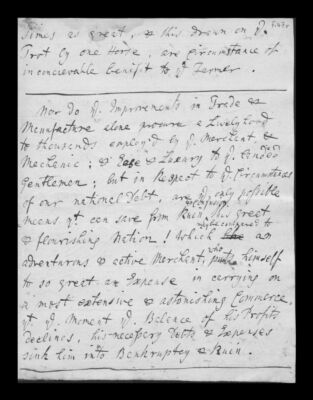 Times as great, & this drawn on ye.
Trot by one Horse, are Circumstances of
inconcievable benifit to ye Farmer.
Nor do ye. Improvements in Trade &
Manufacture alone procure a Livelyhood
to thousands employ'd by ye. Merchant &
Mechanic; & Ease & Luxury to ye. landed
Gentlemen; but in Respect to ye. Circumstances
of our national Debt, are ye. only possible
means yt can save from Ruin this great
& flourishing Nation! Which may be compared to an
adventurous & active Merchant, who puts himself
to so great an Expense in carrying on
a most extensive & astonishing Commerce,
yt. ye. Moment ye. Balance of his Profits
declines, his necessary Debts & Expenses
sink him into Bankruptcy & Ruin.